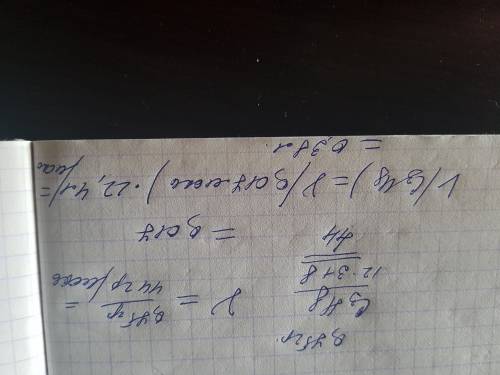 0,75 г.
C₃H₈
12·3+8
44
γ = 0,75 г / 44 г/моль =
= 0,017
V(C₃H₈) = γ(0,017 моль) · 22,4 л/моль =
= 0,38 л.